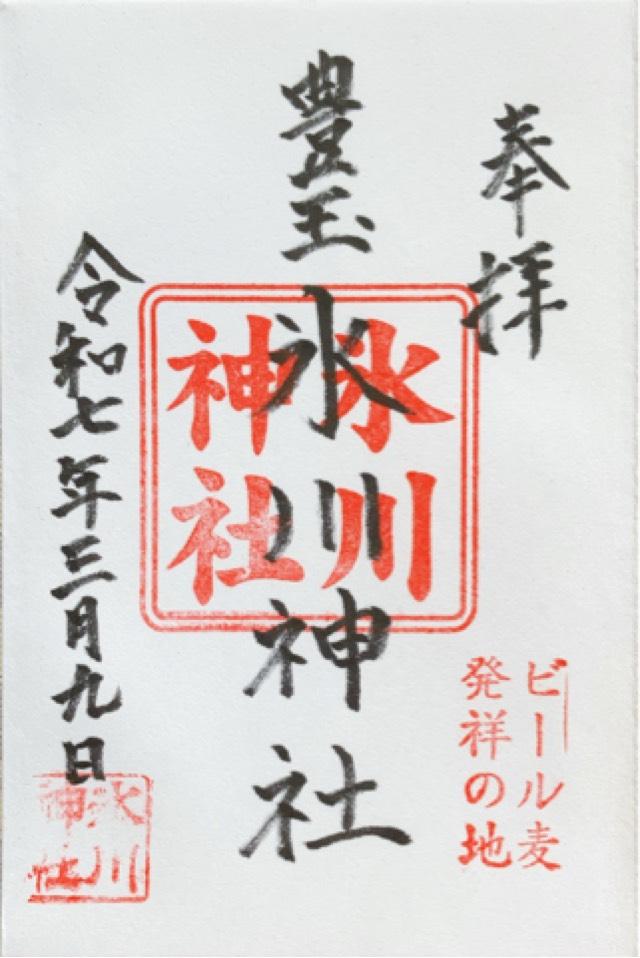 奉拝
ビール麦
発祥の地
豊玉氷川神社
氷川
神社
令和七年三月九日
氷川
神社